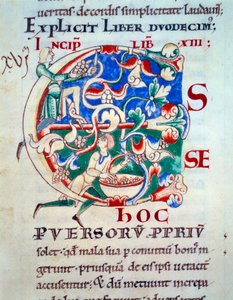 ueritas · de cordis simplicitate laudaui
EXPLICIT LIBER DVODECIM;
INCIP̄ LIB̄ XIII:
E S
SE
HOC
PVERSORV̄ P̄PRIV̄
solet · qđ mala sua p conuitiū bonis in
gerunt · priusquā de eis ipsi ueracit̄
accusentur · Et dū metuunt increpa